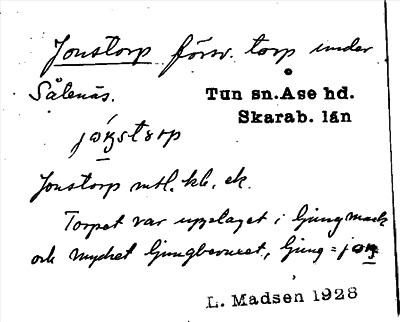 Jonstorp försv. torp under
Sålenäs.
Tun sn. Åse hd.
Skarab. län
Jonstorp mtl. kb. ek.
Torpet var upptaget i ljungmark
och mycket ljungbevuxet, ljung =
L. Madsen 1928